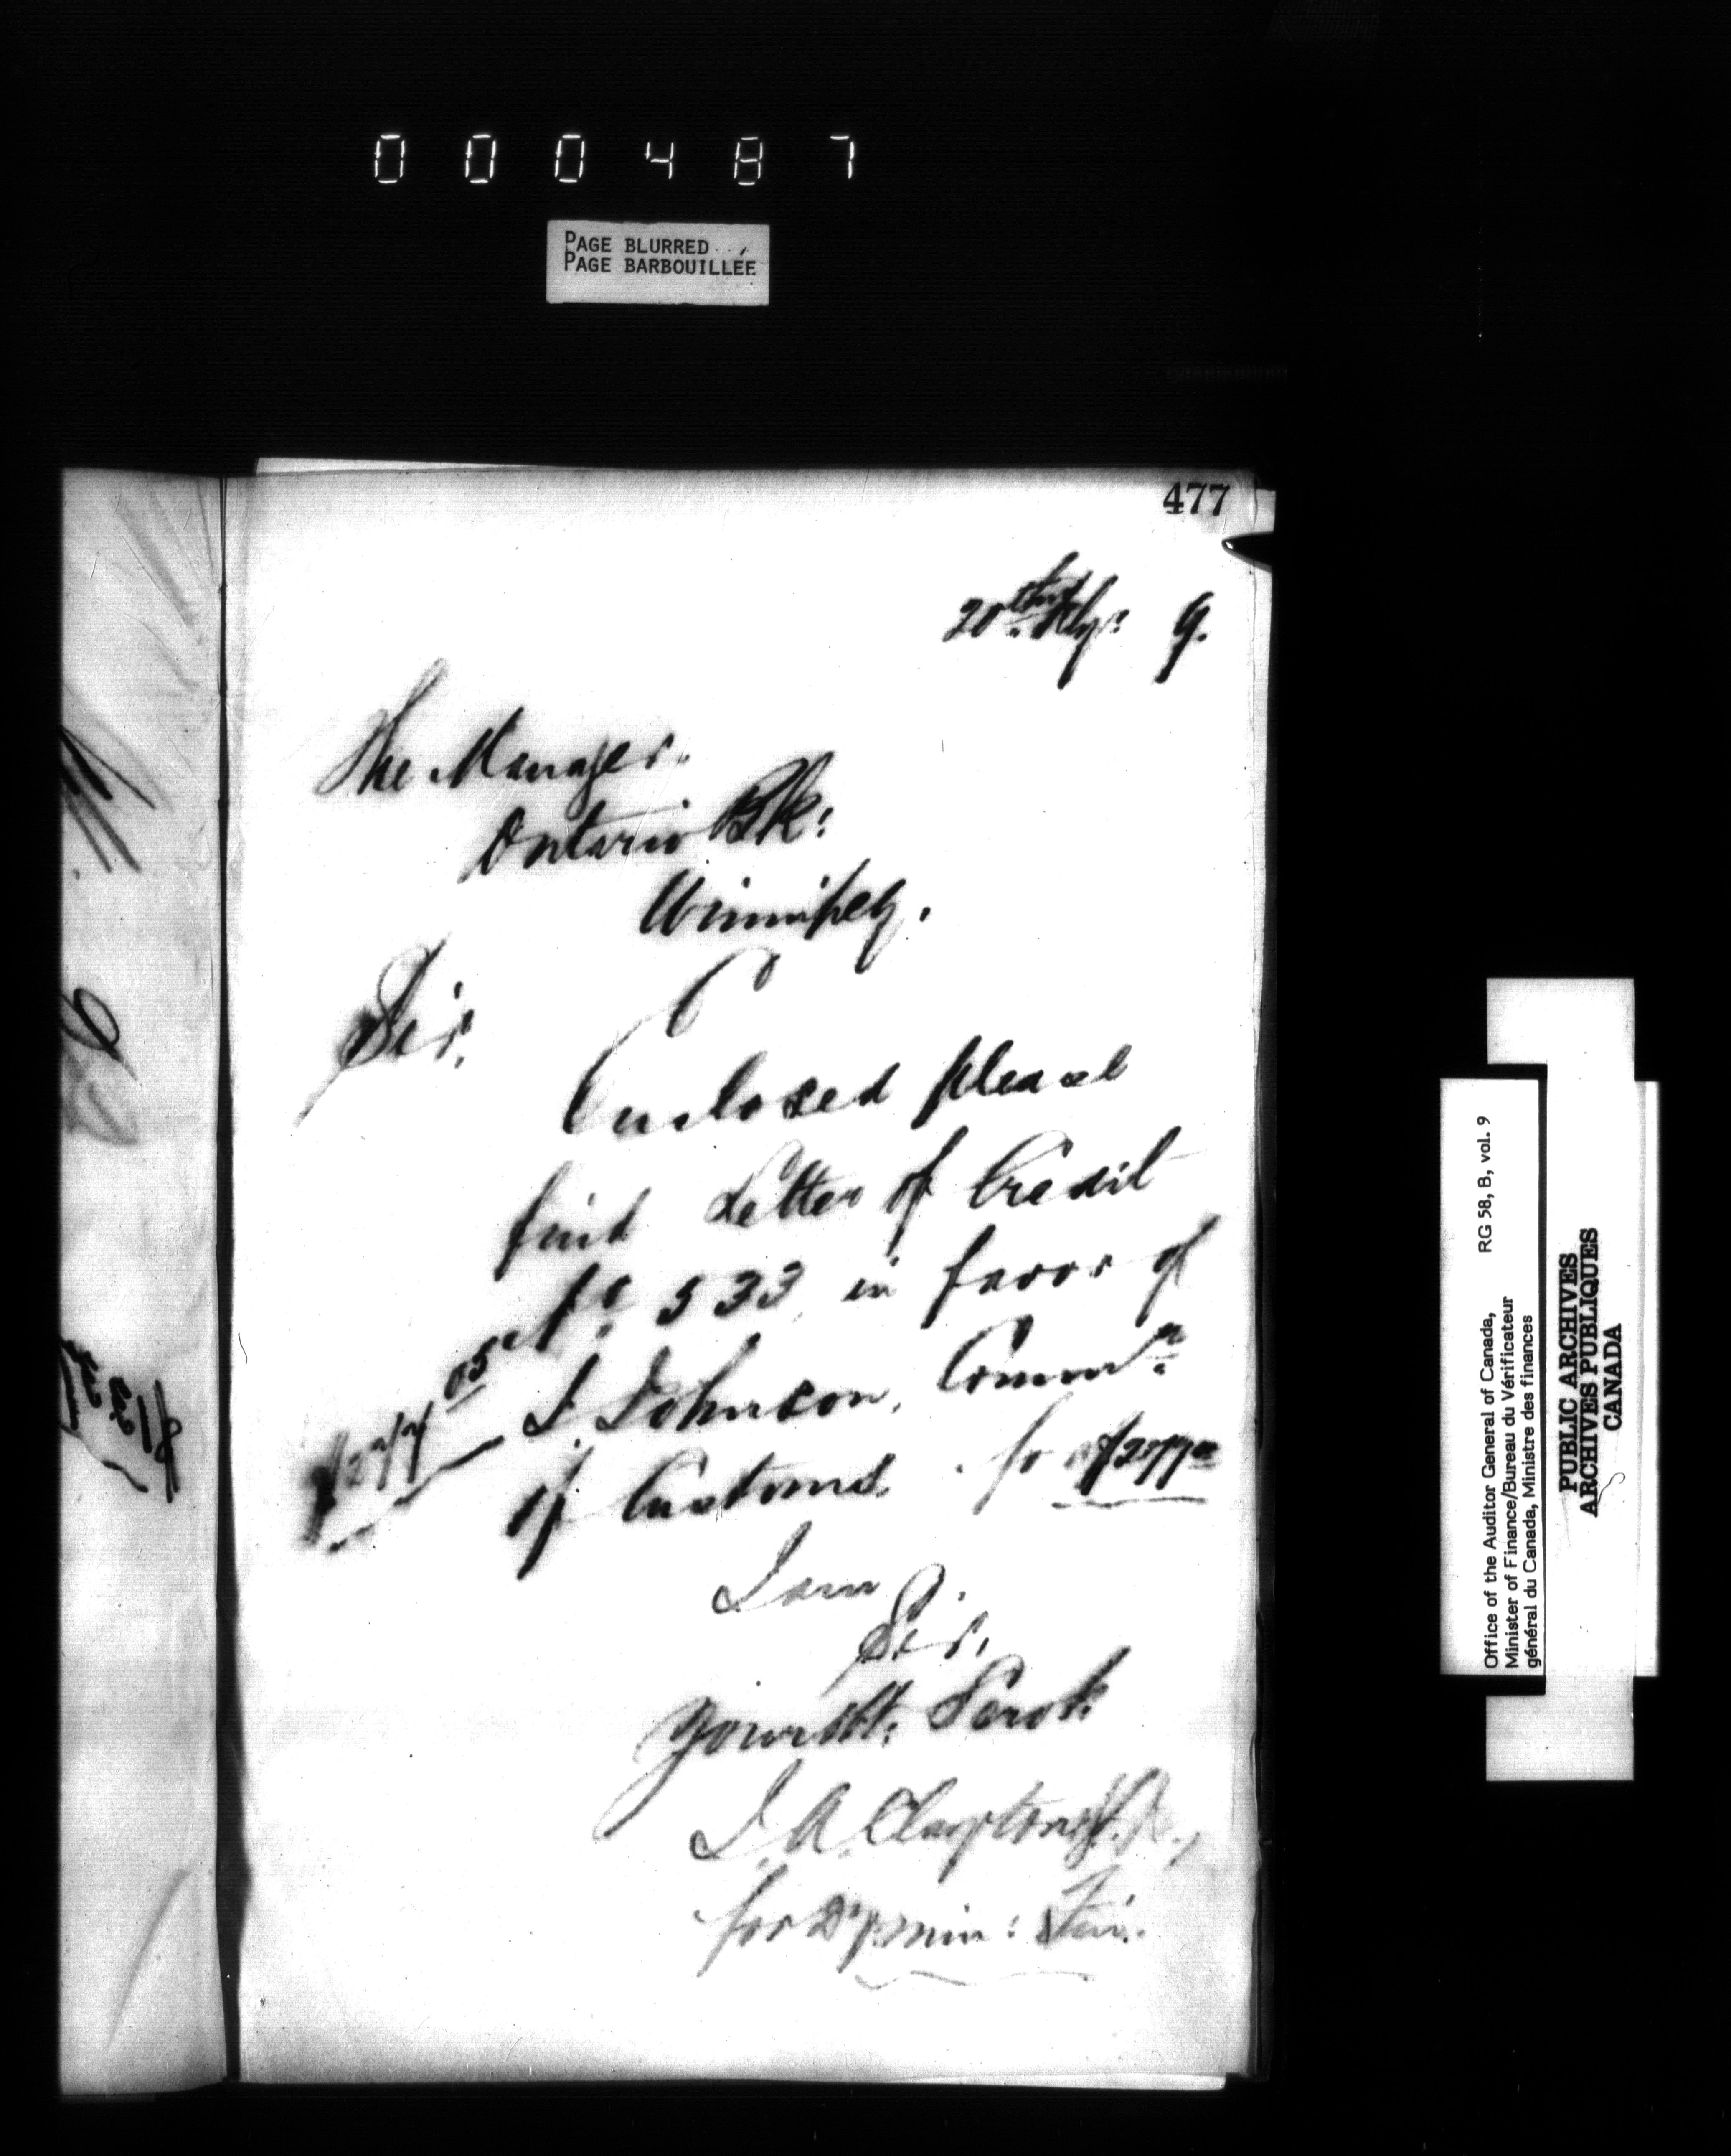 000487
PAGE BLURRED
PAGE BARBOUILLÉE
477
20th 9.
The Manager.
Ontario Bk:
Winnipeg.
Sir,
Enclosed please
find Letter of Credit
No. 533, in favor of
J. Johnson, Commr.
of Customs. for
I am
Sir,
Your obt: Servt:
J. A.
for Dy Min: Fin:
Office of the Auditor General of Canada, RG 58, B, vol. 9
Minister of Finance/Bureau du Vérificateur
général du Canada, Ministre des finances
PUBLIC ARCHIVES
ARCHIVES PUBLIQUES
CANADA